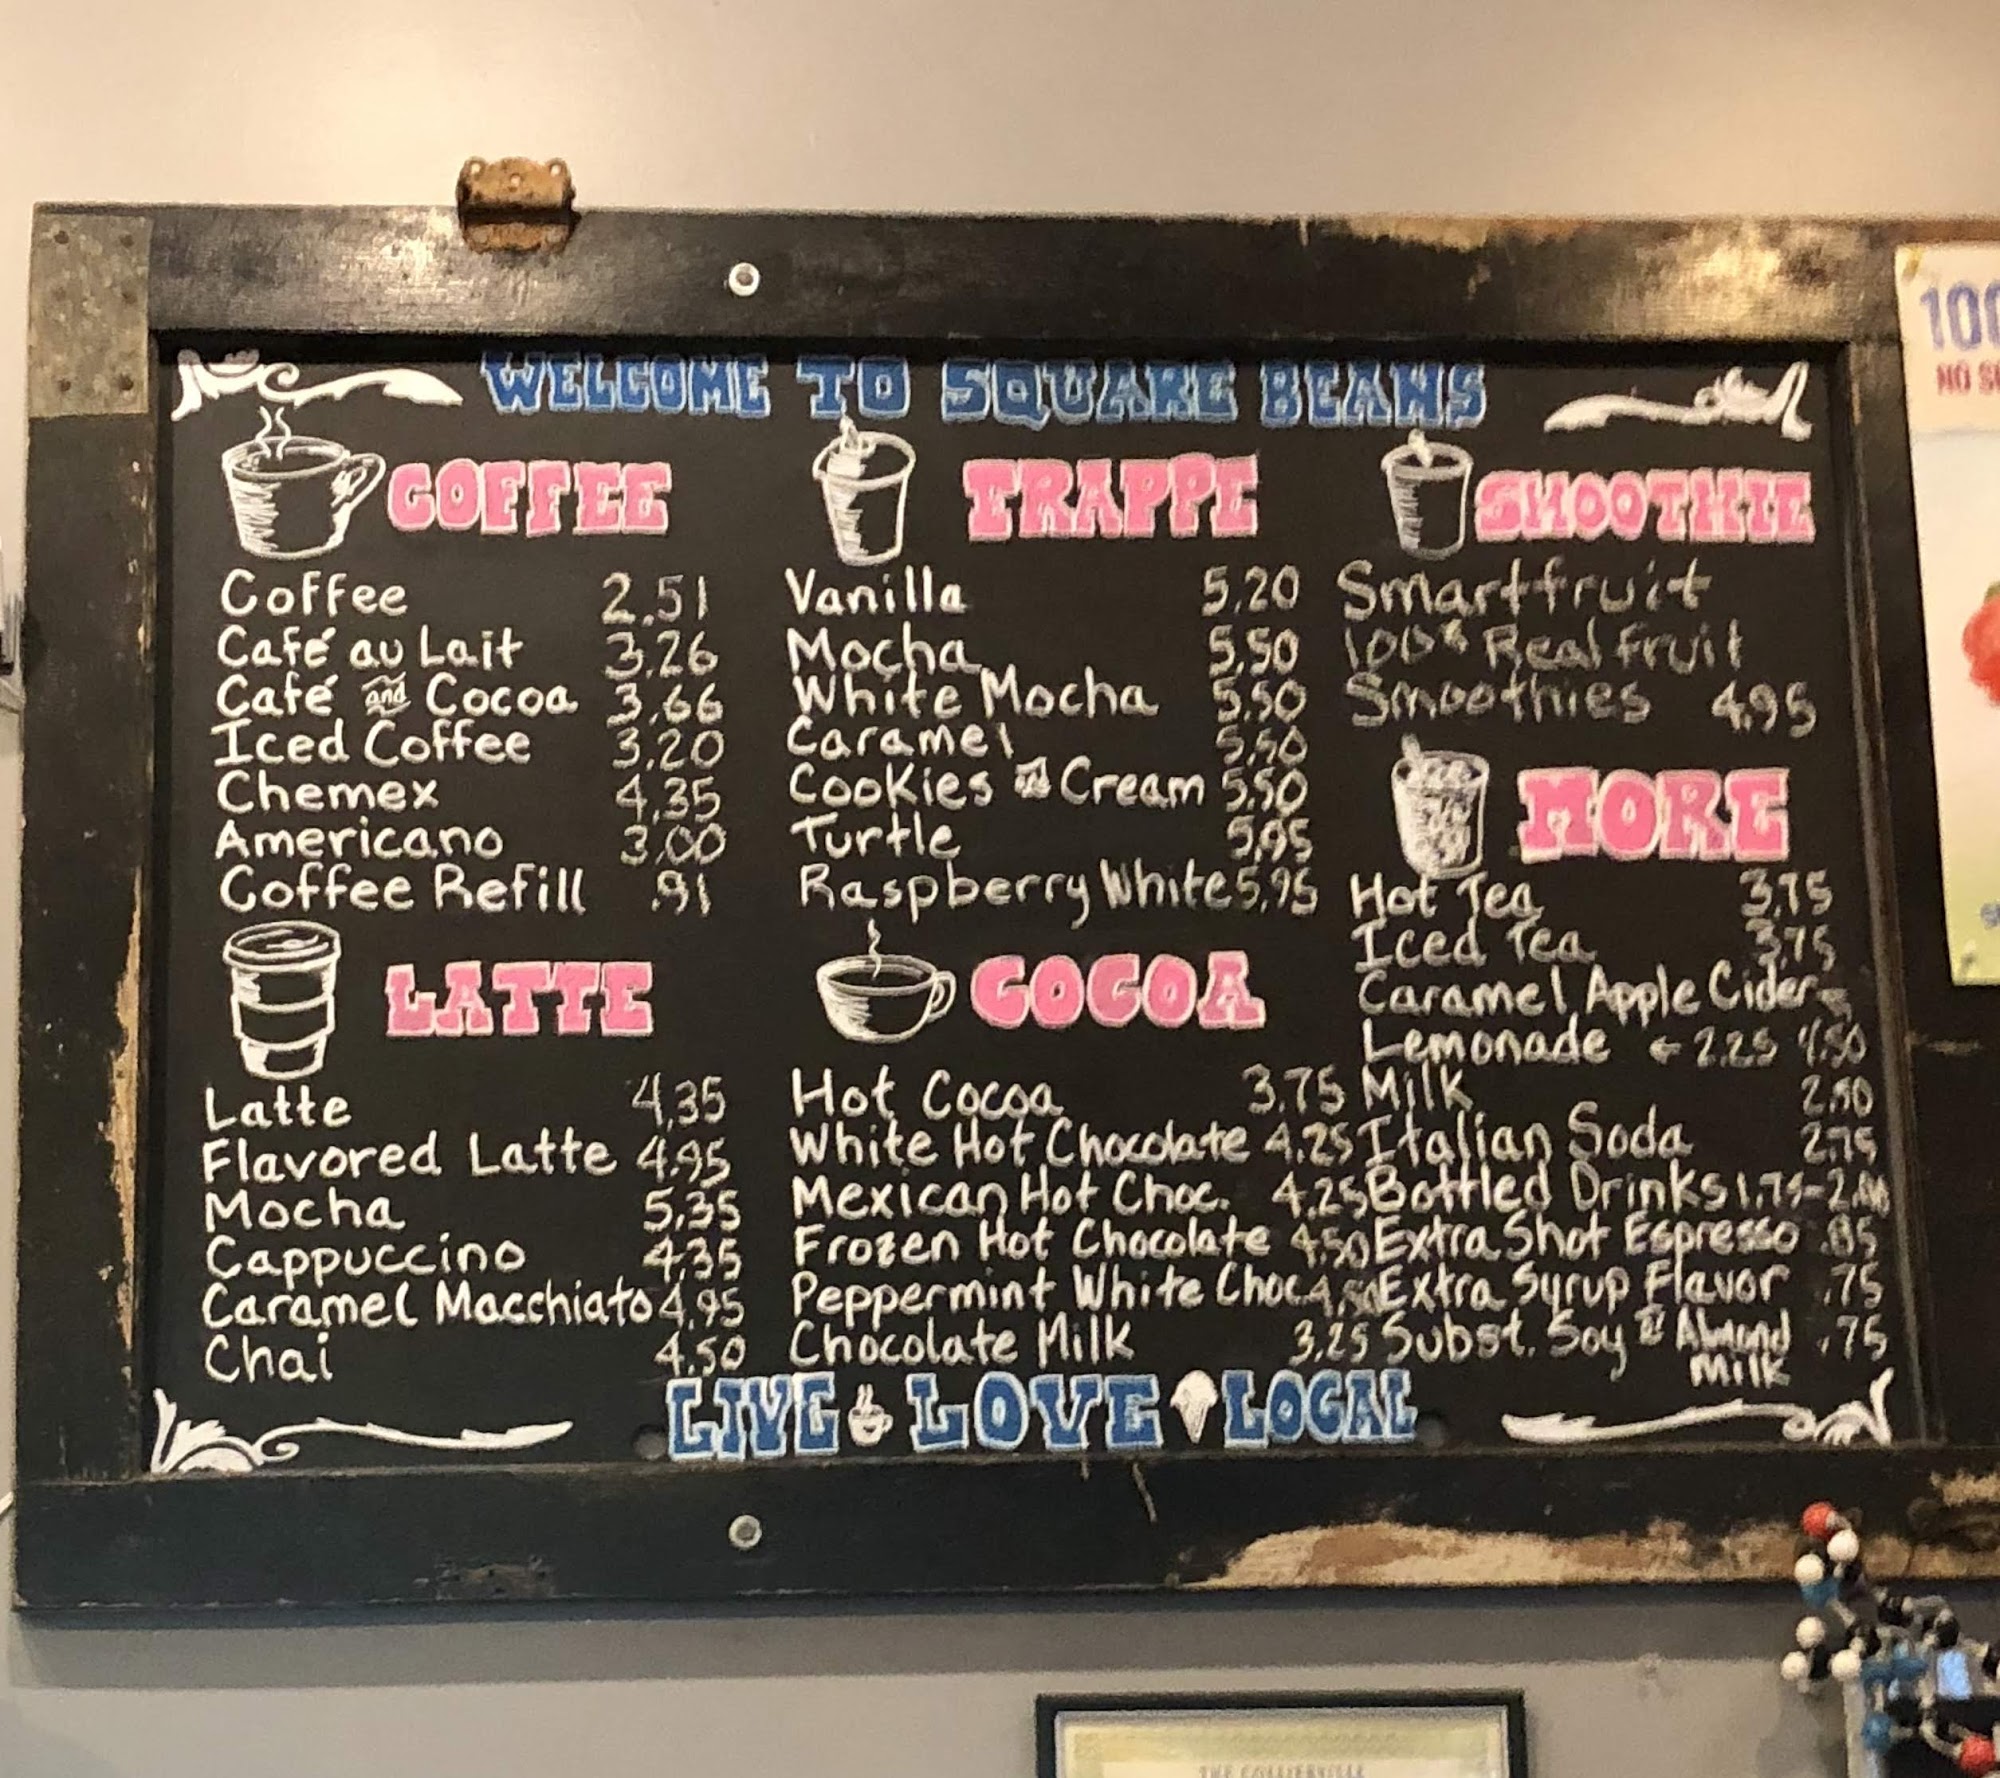 WELCOME TO SQUARE BEANS
COFFEE
Coffee 2.51
Café au Lait 3.26
Café and Cocoa 3.66
Iced Coffee 3.20
Chemex 4.35
Americano 3.00
Coffee Refill .91
LATTE
Latte 4.35
Flavored Latte 4.95
Mocha 5.35
Cappuccino 4.35
Caramel Macchiato 4.95
Chai 4.50
FRAPPE
Vanilla 5.20
Mocha 5.50
White Mocha 5.50
Caramel 5.50
Cookies and Cream 5.50
Turtle 5.95
Raspberry White 5.95
COCOA
Hot Cocoa 3.75
White Hot Chocolate 4.25
Mexican Hot Choc. 4.25
Frozen Hot Chocolate 4.50
Peppermint White Choc 4.50
Chocolate Milk 3.25
SMOOTHIE
Smartfruit
100% Real Fruit
Smoothies 4.95
MORE
Hot Tea 3.75
Iced Tea 3.75
Caramel Apple Cider
Lemonade ← 2.25 4.50
Milk 2.50
Italian Soda 2.75
Bottled Drinks 1.75-
Extra Shot Espresso .85
Extra Syrup Flavor .75
Subst. Soy Almond .75
Milk
LIVE LOVE LOCAL
100
NO
THE COLLIERVILLE